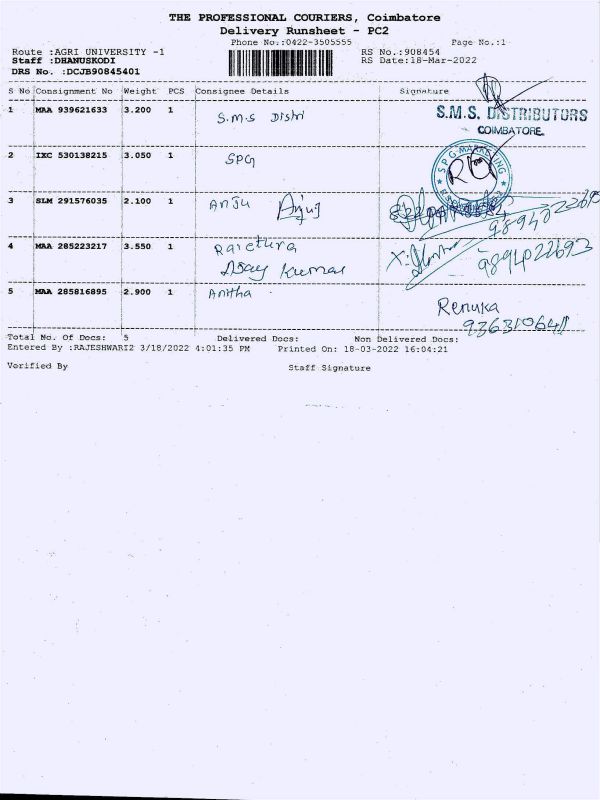 THE PROFESSIONAL COURIERS, Coimbatore
Delivery Runsheet - PC2
Phone No.:0422-3505555 Page No.:1
Route :AGRI UNIVERSITY -1 RS No.:908454
Staff :DHANUSKODI RS Date:18-Mar-2022
DRS No. :DCJB90845401
S No Consignment No Weight PCS Consignee Details Signature
1 MAA 939621633 3.200 1 S.M.S Distri S.M.S. DISTRIBUTORS
COIMBATORE.
2 IXC 530138215 3.050 1 SPG SPG MARKETING
3 SLM 291576035 2.100 1 Anju Anju
4 MAA 285223217 3.550 1 9894022693
Kumar
5 MAA 285816895 2.900 1 Anitha
Renuka
Total No. Of Docs: 5 Delivered Docs: Non Delivered Docs:
Entered By :RAJESHWARI2 3/18/2022 4:01:35 PM Printed On: 18-03-2022 16:04:21
Verified By Staff Signature